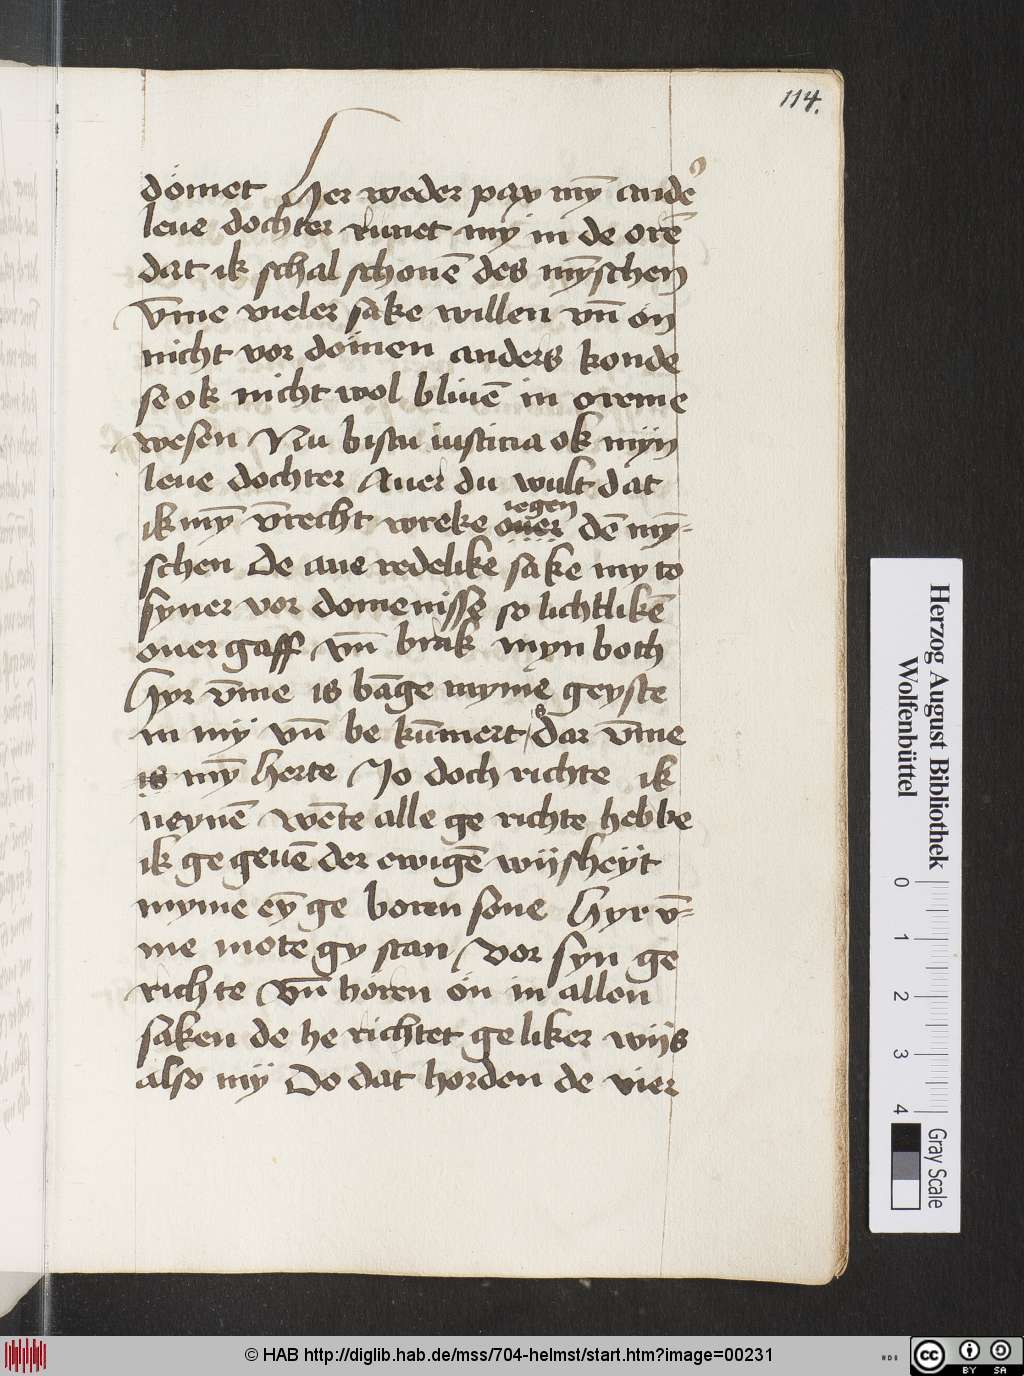 114.
domet Her weder pax mȳ ande᾽
leue dochter runet my in de orē
dat ik schal schonē des mȳschen
v̄me vieler sake willen vn̄ on
nicht vor domen anders konde
se ok nicht wol bliuē in oreme
wesen Nu bistu iusticia ok mijn
leue dochter Auer du wult dat
iegen
ik mȳ v̄recht wreke ouer dē mȳ-
schen De ane redelike sake my to
syner vor domenisse so lichtlikē
ouer gaff vn̄ brak myn both
Hyr v̄me is bāge myme geyste
in mÿ vn̄ be kūmert dar v̄me
is mȳ herte Jo doch richte ik
neynē wēte alle ge richte hebbe
ik ge geuē der ewigē wijsheÿt
myme eȳ ge boren sone Hyr v̄-
me mote gy stan vor syn ge
richte vn̄ horen on in allen
saken de he richtet ge liker wijs
also mÿ Do dat horden de vier
Herzog August Bibliothek
Wolfenbüttel
0 1 2 3 4
Gray Scale
© HAB http://diglib.hab.de/mss/704-helmst/start.htm?image=00231
cc BY SA